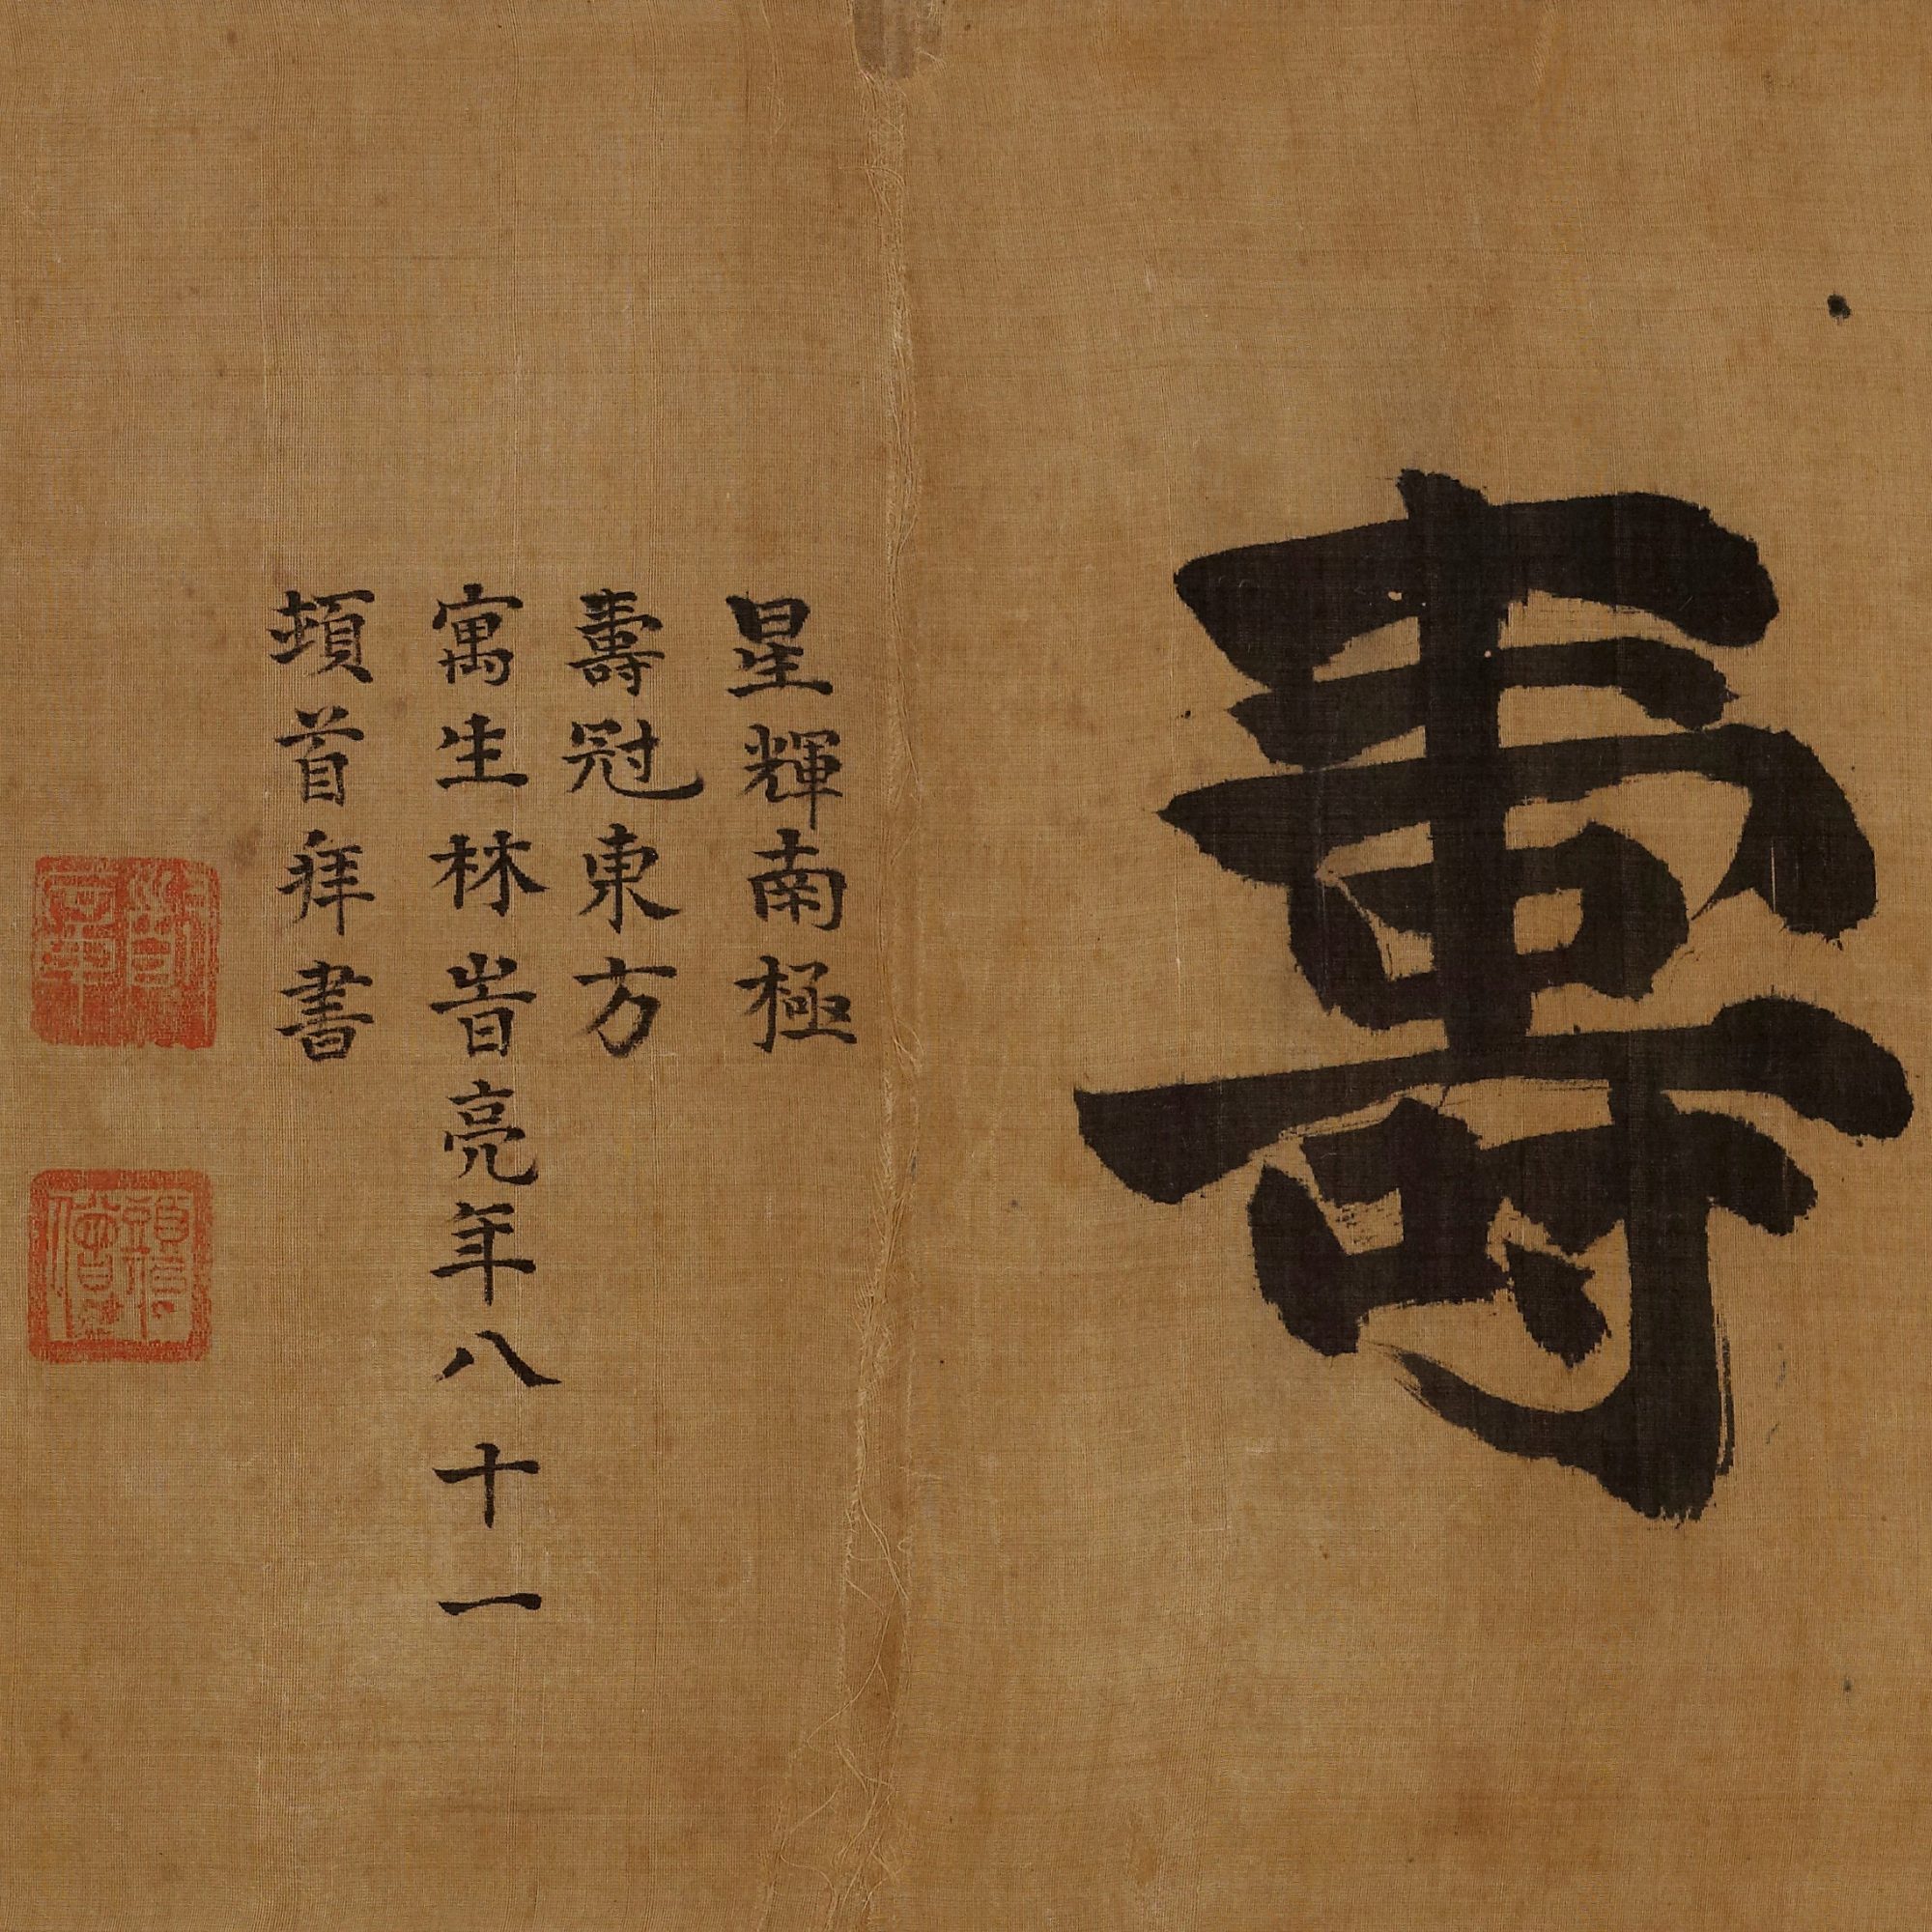 壽
星輝南極
壽冠東方
寓生林旹亮年八十一
頓首拜書